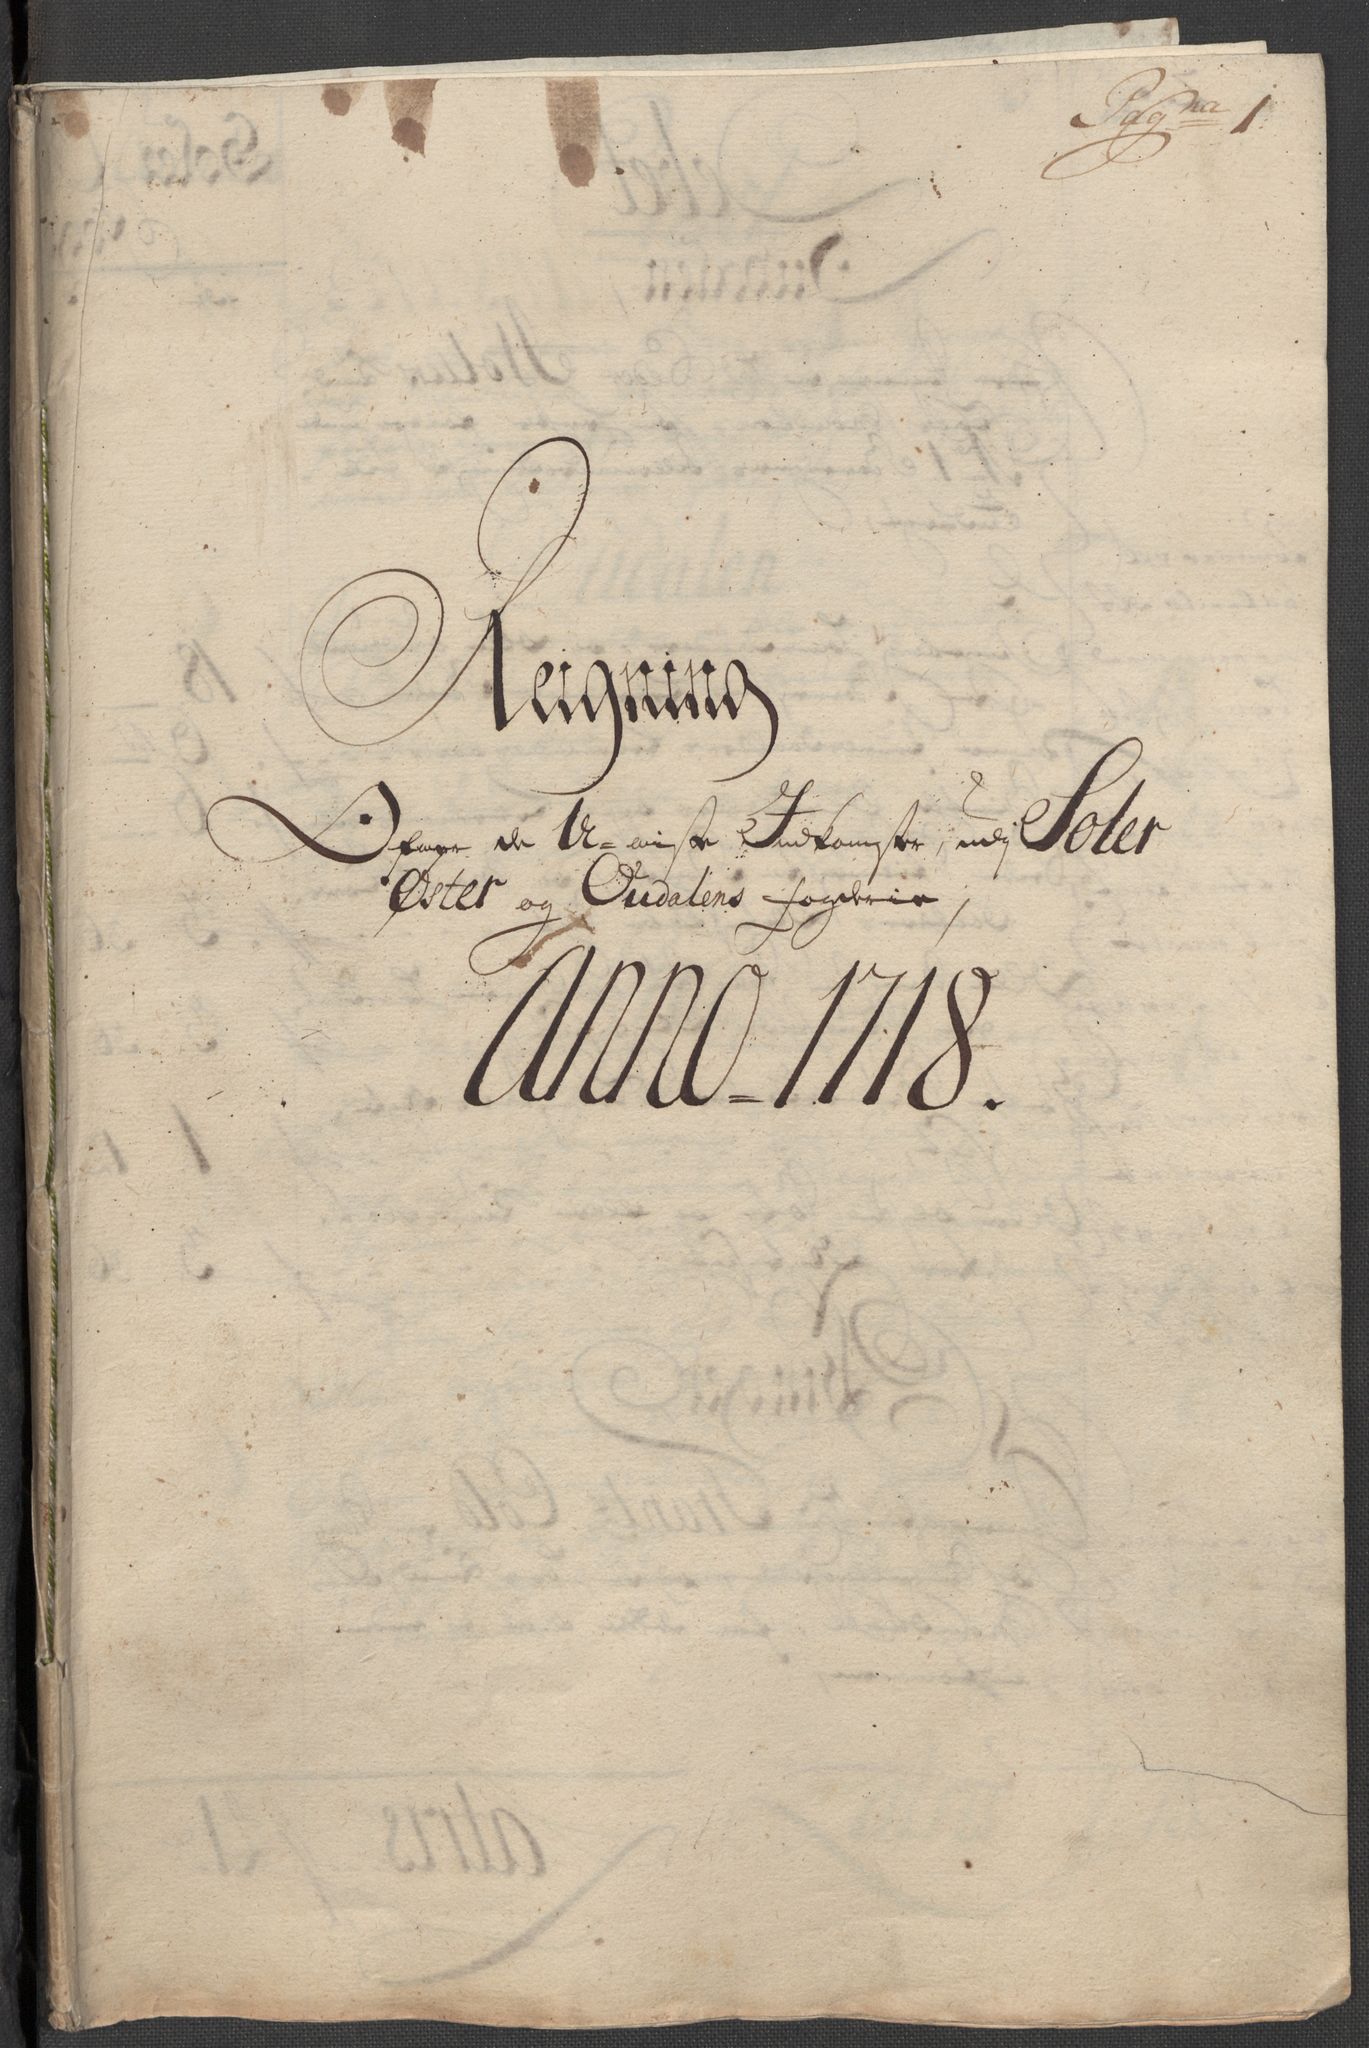 Pag na 1
Reigning
Ofver de U=wiste Indkomster, udj Soler
Øster og Oudalens fogderie,
Anno = 1718.